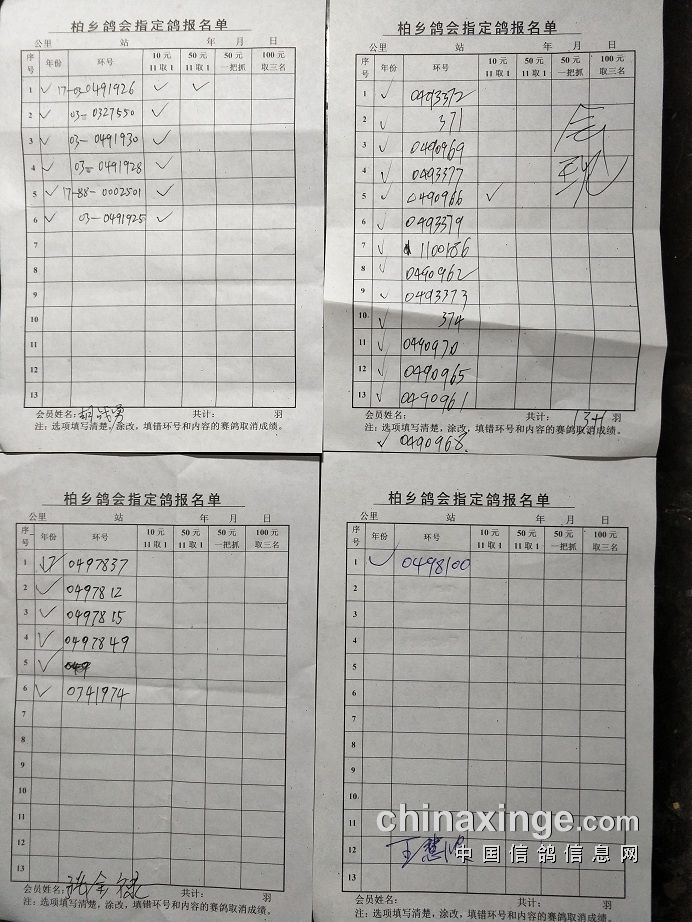 柏乡鸽会指定鸽报名单
公里 站 年 月 日
序号 年份 环号 10元11取1 50元11取1 50元一把抓 100元取三名
1 ✓ 17-03-0491926 ✓ ✓
2 ✓ 03-0327550 ✓
3 ✓ 03-0491930 ✓
4 ✓ 03-0491928 ✓
5 ✓ 17-88-0002501 ✓
6 ✓ 03-0491925 ✓
7
8
9
10
11
12
13
会员姓名: 共计: 羽
注:选项填写清楚,涂改,填错环号和内容的赛鸽取消成绩。
柏乡鸽会指定鸽报名单
公里 站 年 月 日
序号 年份 环号 10元11取1 50元11取1 50元一把抓 100元取三名
1 ✓ 0493372
2 ✓ 371
3 ✓ 0490969
4 ✓ 0493377
5 ✓ 0490966 ✓
6 ✓ 0493379
7 ✓ 1100186
8 ✓ 0490962
9 ✓ 0493373
10 ✓ 374
11 ✓ 0490970
12 ✓ 0490965
13 ✓ 0490961
会员姓名: 共计: 羽
注:选项填写清楚,涂改,填错环号和内容的赛鸽取消成绩。
✓ 0490968
柏乡鸽会指定鸽报名单
公里 站 年 月 日
序号 年份 环号 10元11取1 50元11取1 50元一把抓 100元取三名
1 17 ✓ 0497837
2 ✓ 0497812
3 ✓ 0497815
4 ✓ 0497849
5 ✓
6 ✓ 0741974
7
8
9
10
11
12
13
会员姓名: 共计: 羽
注:选项填写清楚,涂改,填错环号和内容的赛鸽取消成绩。
柏乡鸽会指定鸽报名单
公里 站 年 月 日
序号 年份 环号 10元11取1 50元11取1 50元一把抓 100元取三名
1 ✓ 0498100
2
3
4
5
6
7
8
9
10
11
12
13
会员姓名: 共计: 羽
注:选项填写清楚,涂改,填错环号和内容的赛鸽取消成绩。
chinaxinge.com
中国信鸽信息网